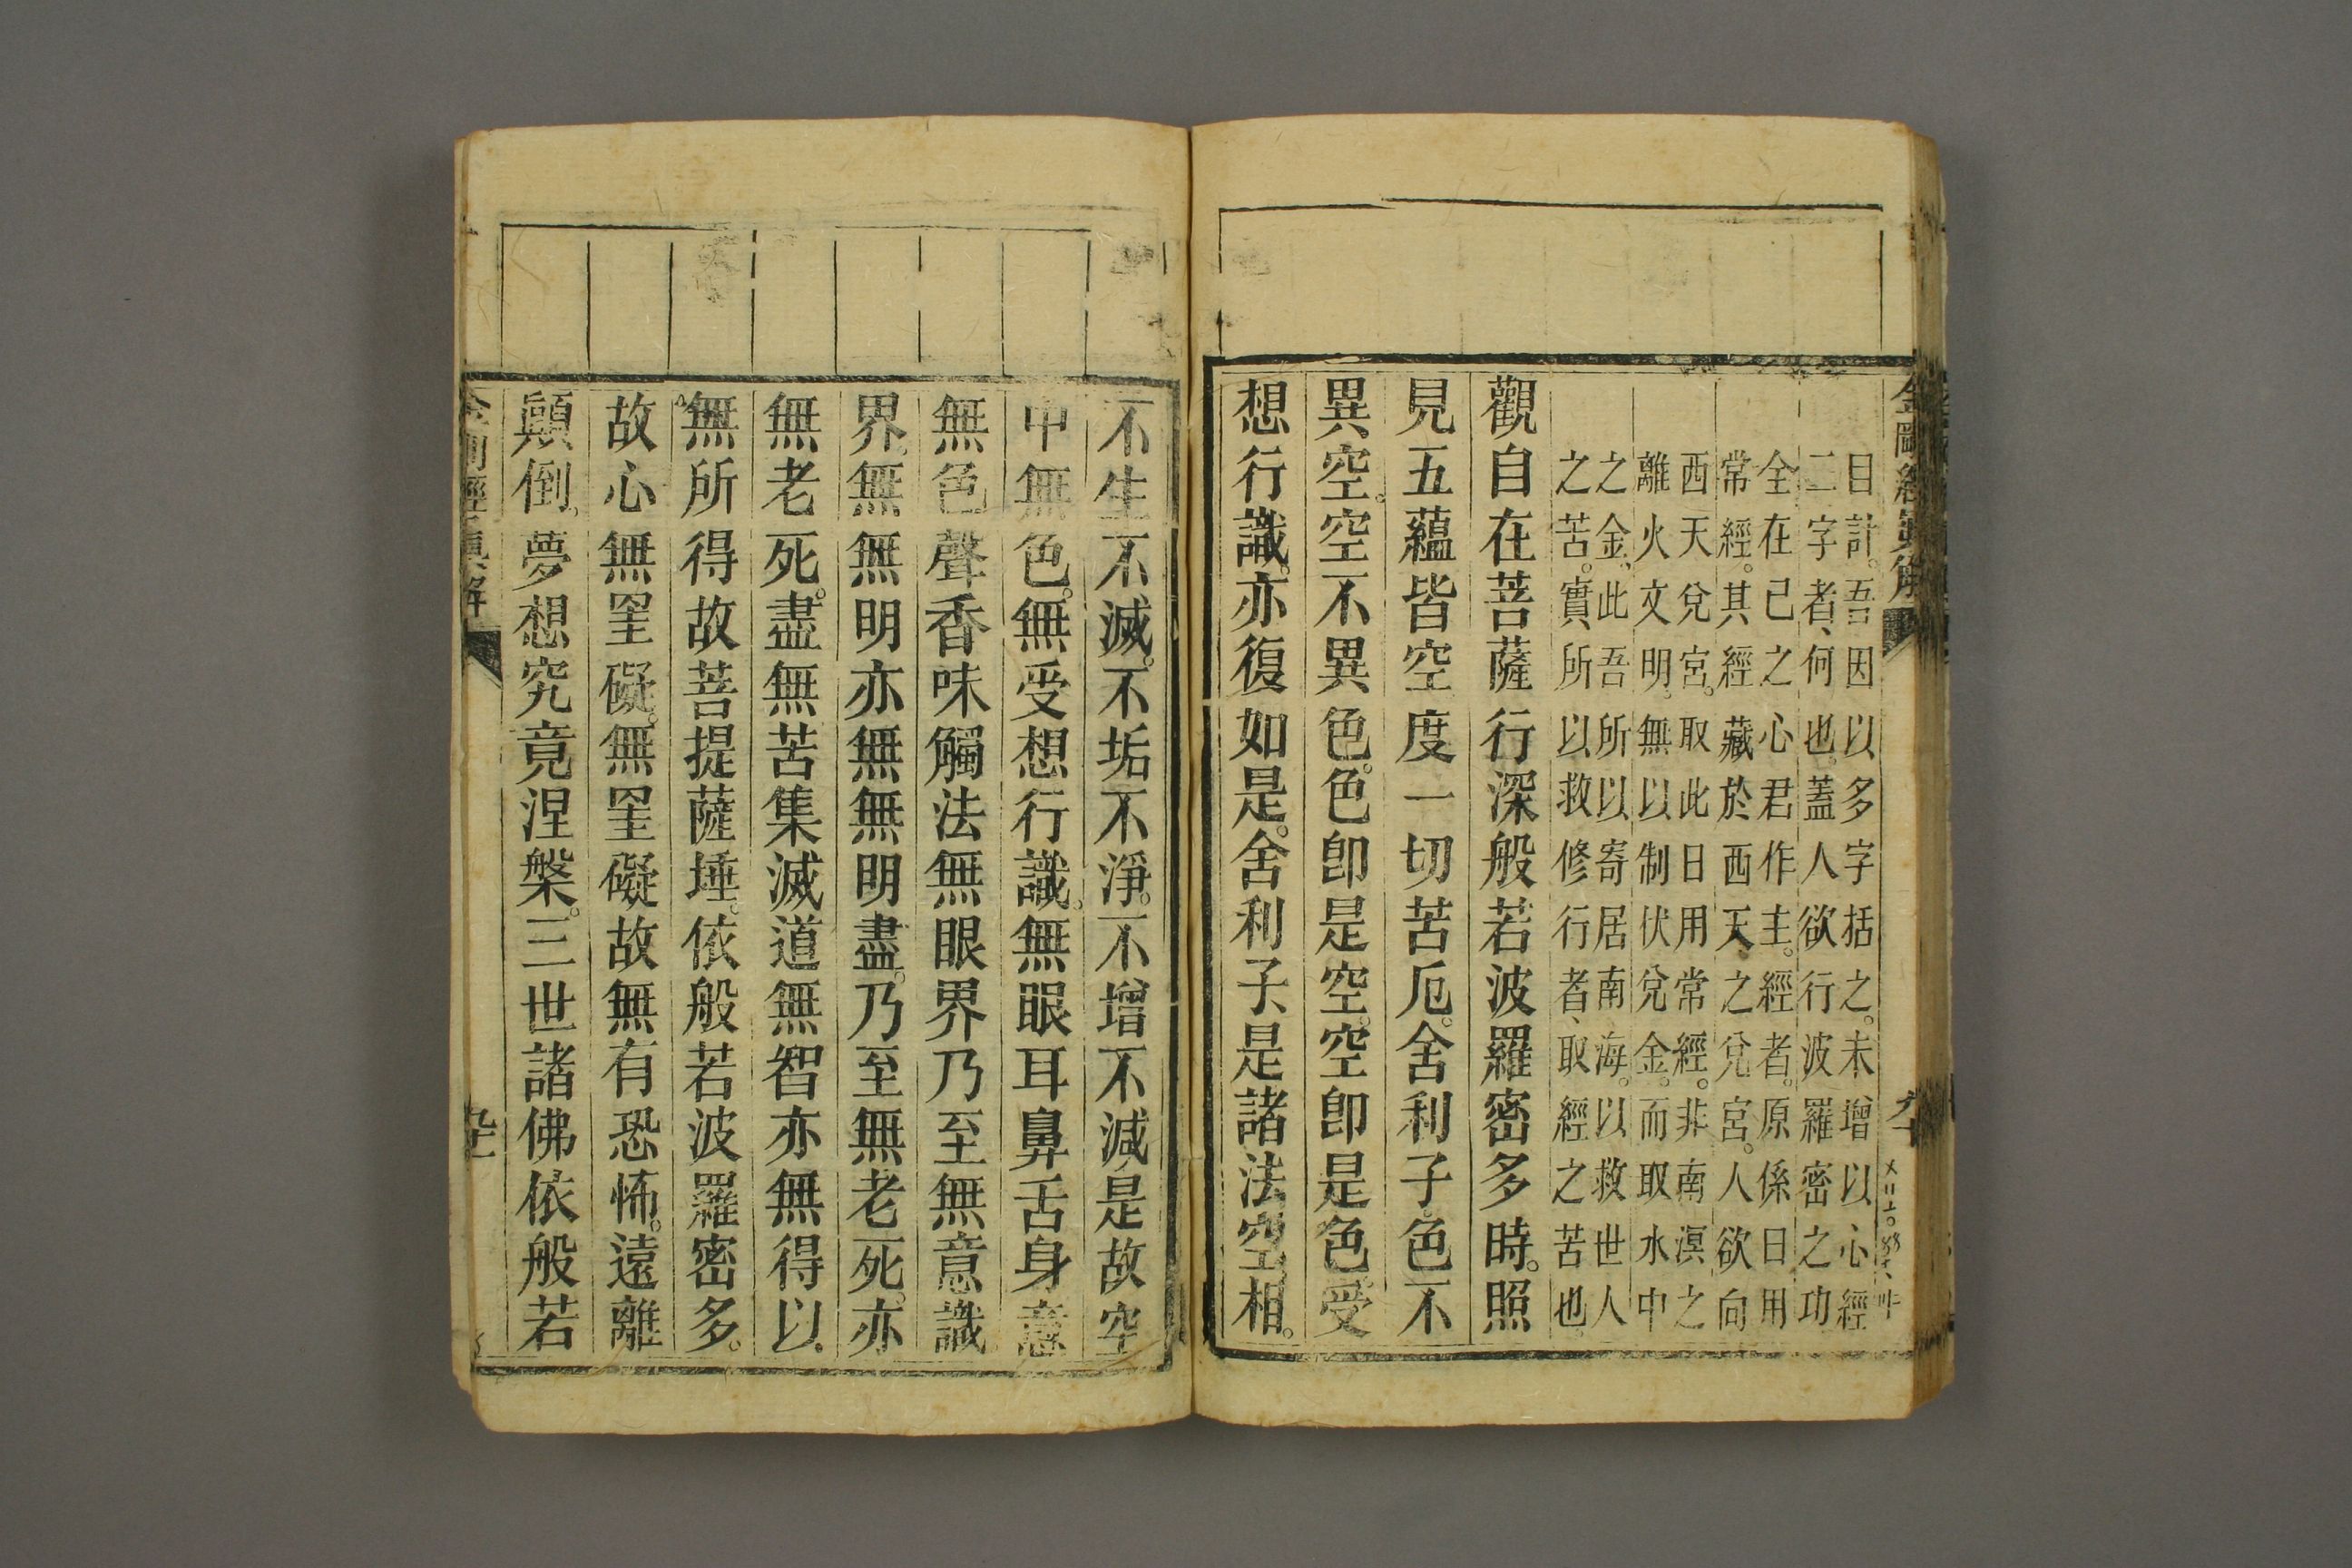 金剛經真解
九十
目計。吾因以多字括之。未增以心經
二字者、何也。蓋人欲行波羅密之功
全在己之心君作主。經者。原係日用
常經。其經藏於西天之兌宮。人欲向
西天兌宮。取此日用常經。非南溟之
離火文明。無以制伏兌金。而取水中
之金。此吾所以寄居南海。以救世人
之苦。實所以救修行者、取經之苦也。
觀自在菩薩行深般若波羅密多時。照
見五蘊皆空度一切苦厄。舍利子。色不
異空。空不異色。色卽是空。空卽是色。受
想行識。亦復如是。舍利子、是諸法空相。
不生不滅。不垢不淨。不增不減是故空
中無色。無受想行識。無眼耳鼻舌身意
無色聲香味觸法無眼界乃至無意識
界。無無明亦無無明盡。乃至無老死。亦
無老死。盡無苦集滅道無智亦無得以
無所得故菩提薩埵。依般若波羅密多。
故心無罣礙。無罣礙故無有恐怖。遠離
顚倒。夢想究竟涅槃。三世諸佛依般若
金剛經真解